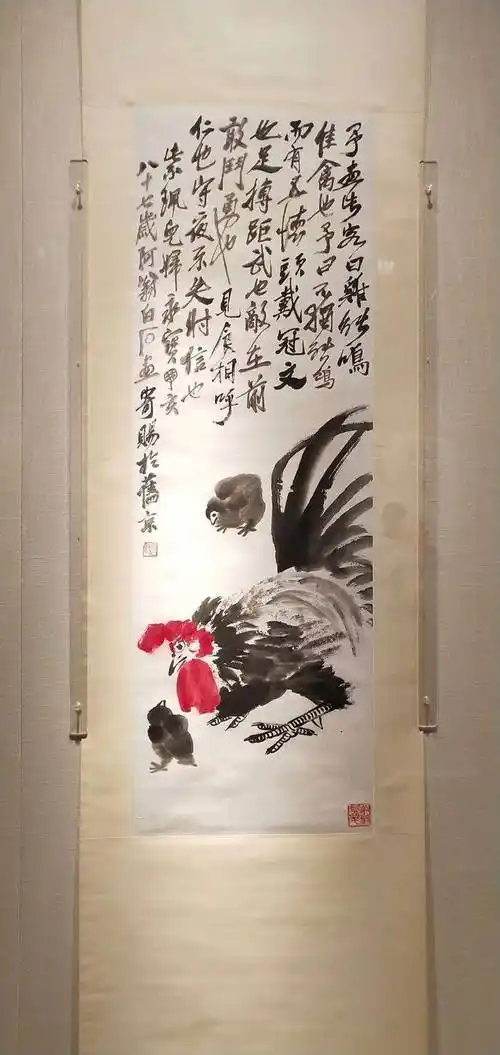 予畫此客曰雞能鳴
佳禽也予曰不獨能鳴
而有五德頭戴冠文
也足摶距武也敵在前
敢鬥勇也見食相呼
仁也守夜不失時信也
紫珮兒婦永寶甲亥
八十七歲阿翁白石畫寄賜於舊京